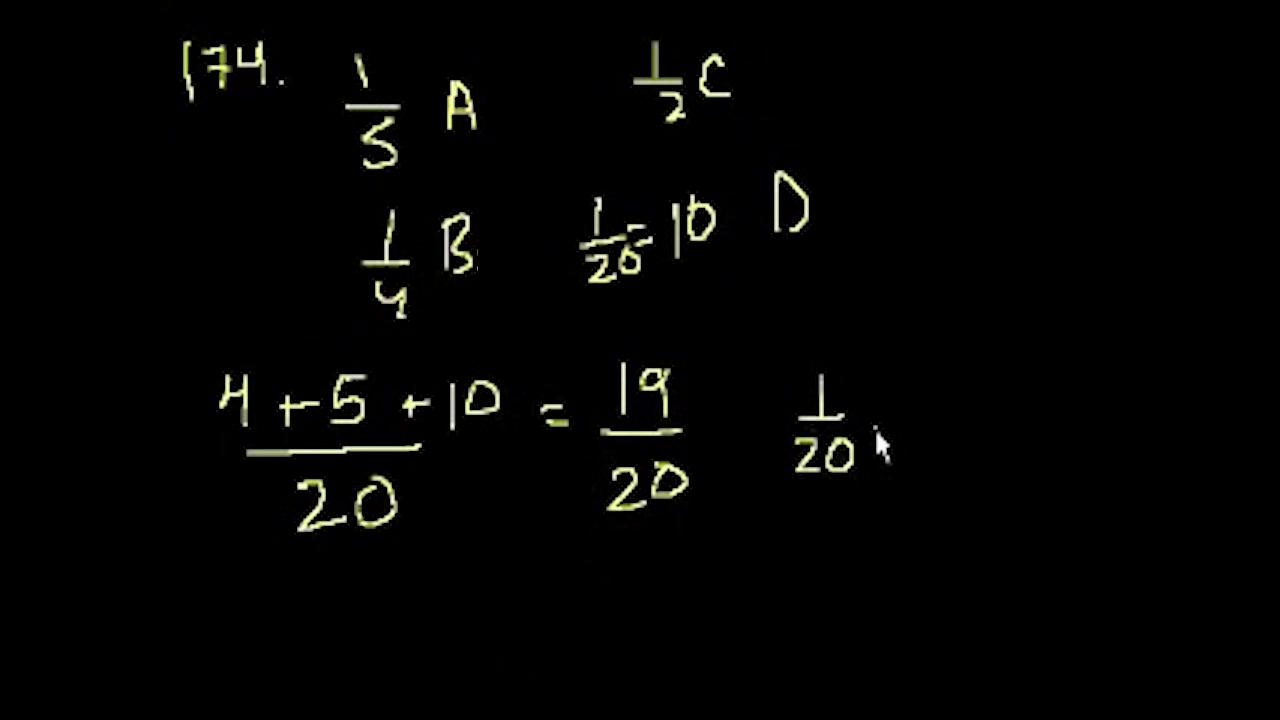 174. 1/5 A 1/2 C
1/4 B 1/20 = 10 D
4 + 5 + 10 / 20 = 19/20 1/20